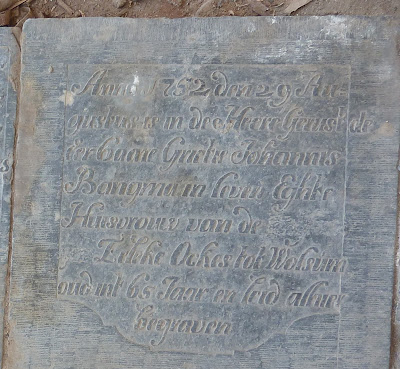 Anno 1752 den 29 Au-
gustus is in de Heere Gerust de
eer baare Grietie Johannis
Bangma in leven Echte
Huisvrouw van de
Eelke Ockes tot Wolsum
oud int 65 Jaar en leid alhier
begraven